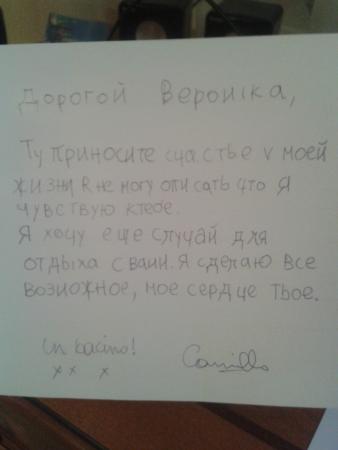 Дорогой Вероника,
Ту приносите счастье v моей
жизни R не могу описать что Я
чувствую ктебе.
Я хочу еще случай для
отдыха с вами. Я сделаю все
возможное, мое сердце твое.
Un bacino!
Camillo
x x x